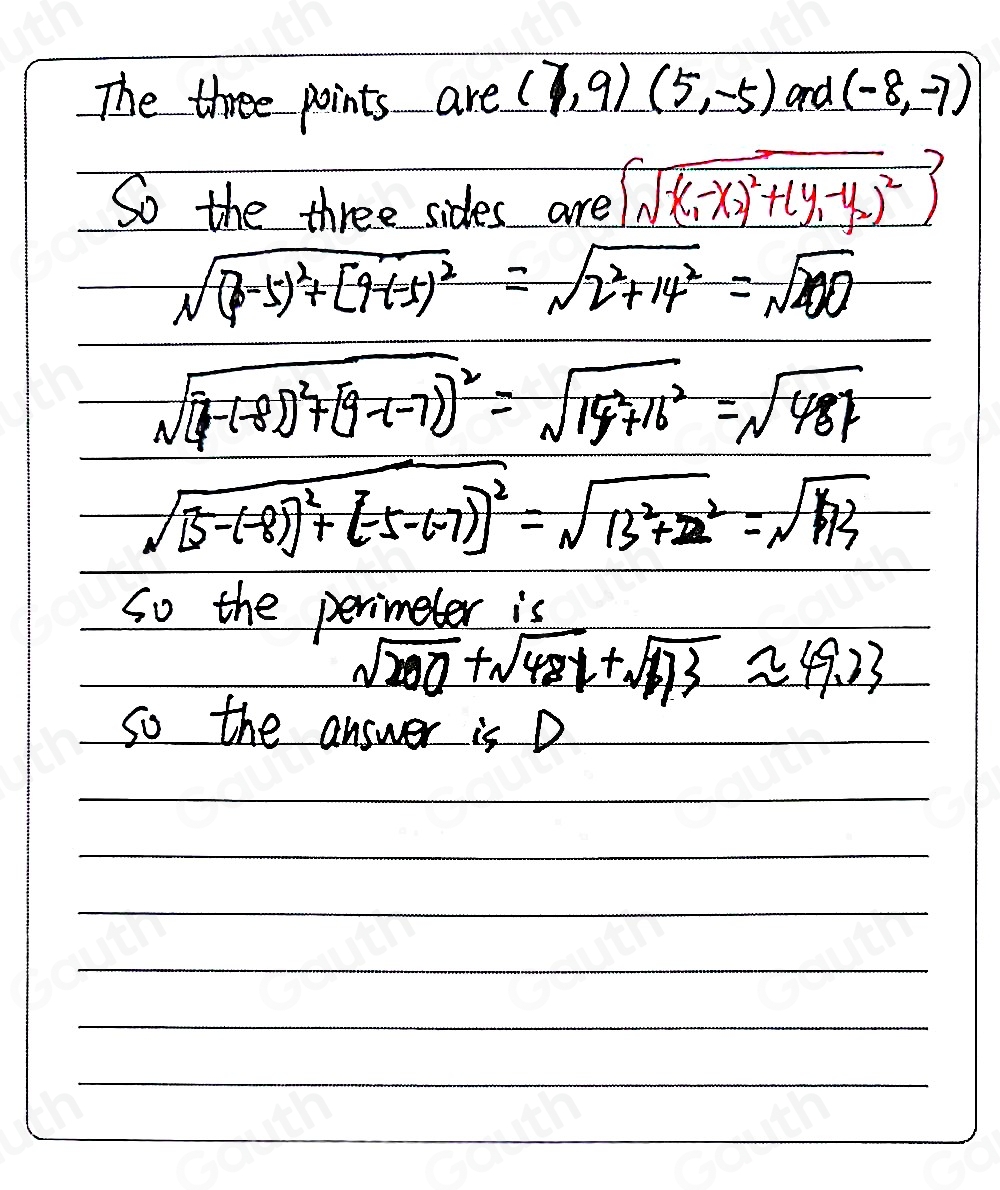 The three points are (7,9) (5,-5) and (-8,-7)
So the three sides are (√(x₁-x₂)²+(y₁-y₂)²)
√(7-5)²+[9-(-5)² = √2²+14² = √200
√[7-(-8)]²+[9-(-7)]² = √15²+16² = √481
√[5-(-8)]²+[-5-(-7)]² = √13²+2² = √173
So the perimeter is
√200+√481+√173 ≈ 49.23
so the answer is D
Gauth